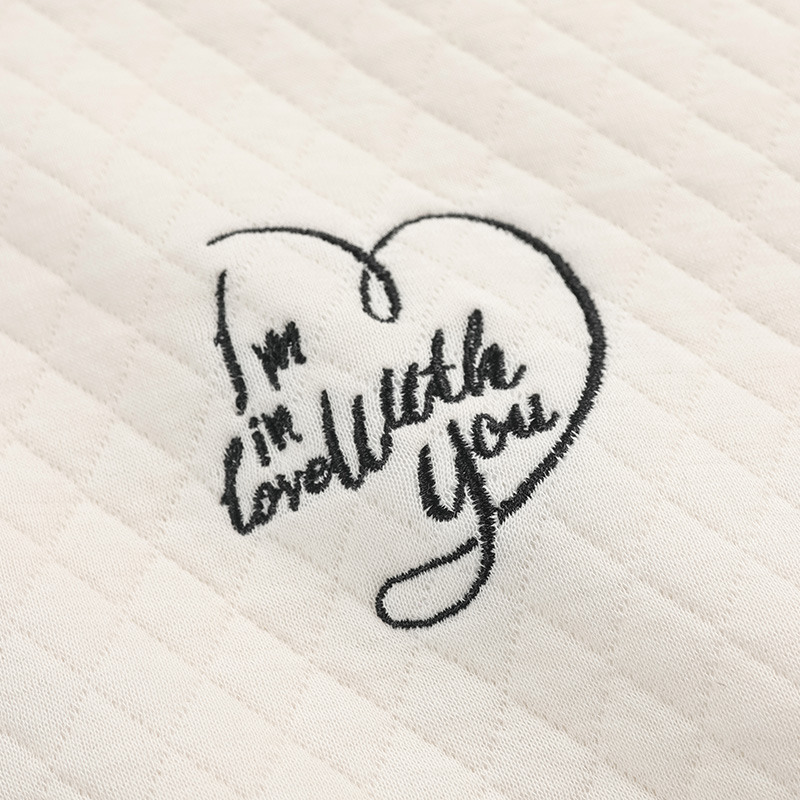 I'm
in
love With
you